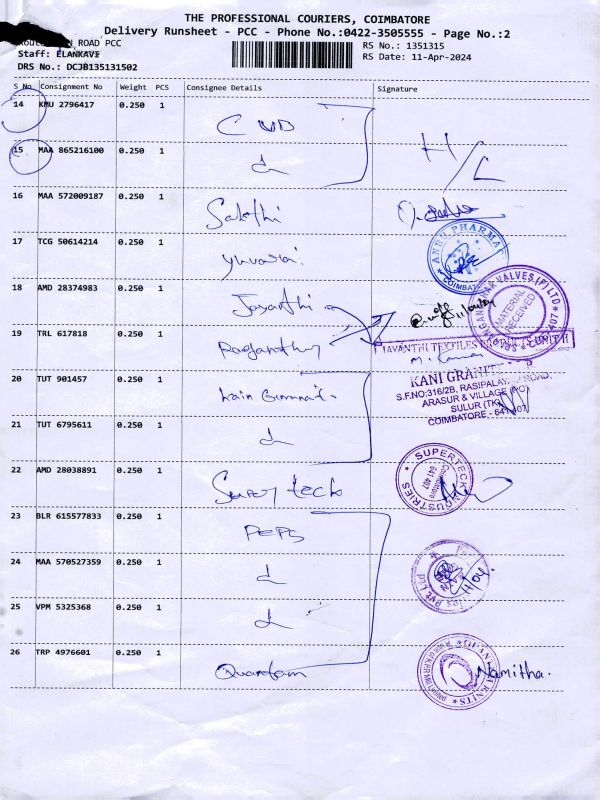 THE PROFESSIONAL COURIERS, COIMBATORE
Delivery Runsheet - PCC - Phone No.:0422-3505555 - Page No.:2
ROAD PCC
RS No.: 1351315
Staff: ELANKAVI
RS Date: 11-Apr-2024
DRS No.: DCJB135131502
S No Consignment No Weight PCS Consignee Details Signature
14 KMU 2796417 0.250 1
15 MAA 865216100 0.250 1
H/L
16 MAA 572009187 0.250 1
Sakthi
17 TCG 50614214 0.250 1
Yuvaraj
ANBU PHARMA
COIMBATORE
18 AMD 28374983 0.250 1
Jayanthi
VALVES (P) LTD
MATERIAL RECEIVED
19 TRL 617818 0.250 1
JAYANTHI TEXTILES PRODUCTS UNIT II
20 TUT 901457 0.250 1
KANI
S.F.NO:316/2B, RASIPALAYAM ROAD,
ARASUR & VILLAGE (PO)
SULUR (TK)
COIMBATORE - 641 407
21 TUT 6795611 0.250 1
22 AMD 28038891 0.250 1
Super tech
SUPERTECH INDUSTRIES
Coimbatore 641 407
23 BLR 615577833 0.250 1
PEPS
24 MAA 570527359 0.250 1
25 VPM 5325368 0.250 1
26 TRP 4976601 0.250 1
Quantam
KNITS
Namitha.